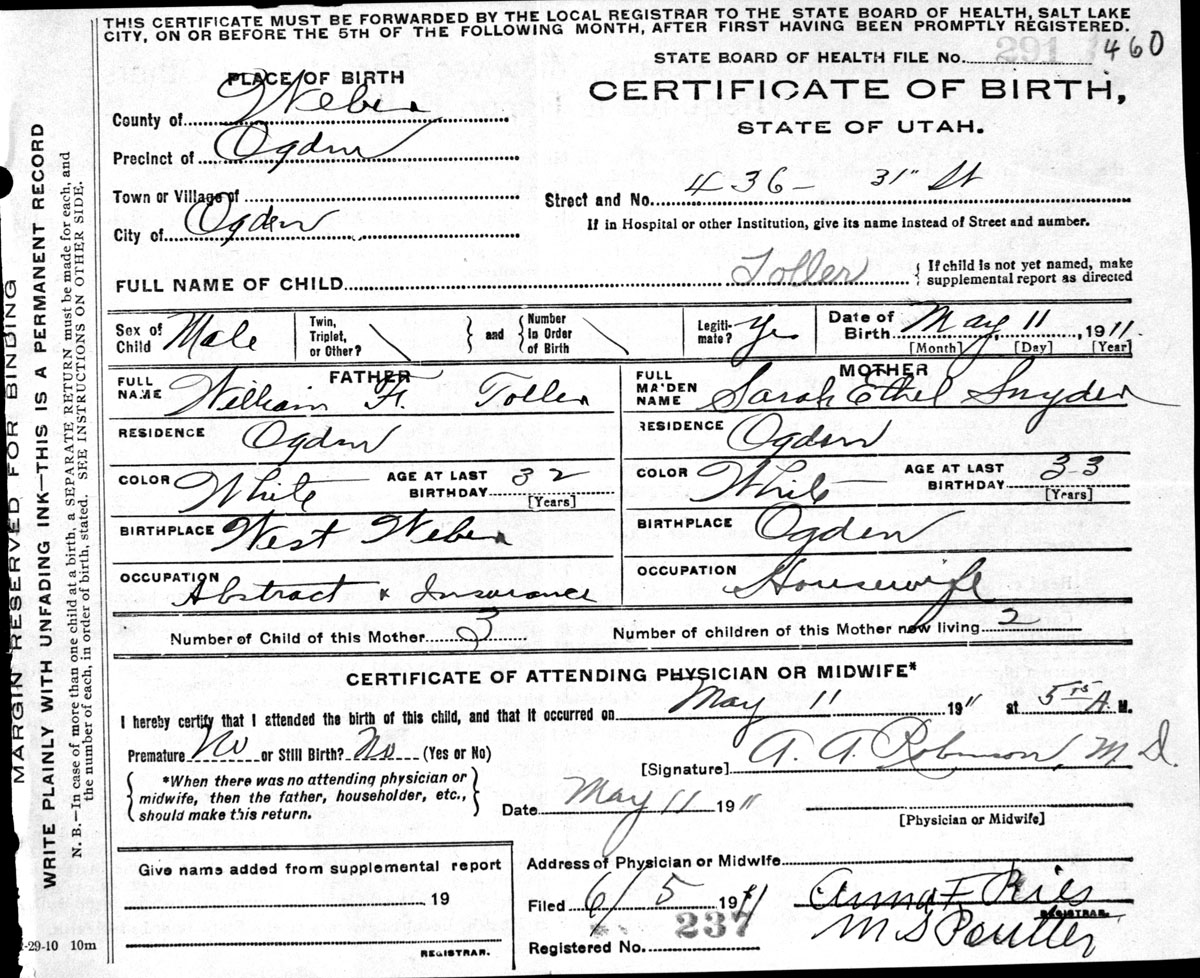 THIS CERTIFICATE MUST BE FORWARDED BY THE LOCAL REGISTRAR TO THE STATE BOARD OF HEALTH, SALT LAKE
CITY, ON OR BEFORE THE 5TH OF THE FOLLOWING MONTH, AFTER FIRST HAVING BEEN PROMPTLY REGISTERED.
STATE BOARD OF HEALTH FILE No. 291 460
PLACE OF BIRTH
CERTIFICATE OF BIRTH,
STATE OF UTAH.
County of Weber
Precinct of Ogden
Town or Village of
Street and No. 436- 31" St
City of Ogden
If in Hospital or other Institution, give its name instead of Street and number.
FULL NAME OF CHILD Toller
{ If child is not yet named, make
supplemental report as directed
Sex of
Child Male
Twin,
Triplet,
or Other?
} and {
Number
in Order
of Birth
Legiti-
mate? Yes
Date of
Birth May 11, 1911.
[Month] [Day] [Year]
FATHER
FULL
NAME William F. Toller
RESIDENCE Ogden
COLOR White
AGE AT LAST
BIRTHDAY 32
[Years]
BIRTHPLACE West Weber
OCCUPATION Abstract & Insurance
MOTHER
FULL
MAIDEN
NAME Sarah Ethel Snyder
RESIDENCE Ogden
COLOR White
AGE AT LAST
BIRTHDAY 33
[Years]
BIRTHPLACE Ogden
OCCUPATION Housewife
Number of Child of this Mother 3 Number of children of this Mother now living 2
CERTIFICATE OF ATTENDING PHYSICIAN OR MIDWIFE*
I hereby certify that I attended the birth of this child, and that it occurred on May 11 1911 at 5 15 A. M.
Premature No or Still Birth? No (Yes or No)
[Signature] A. A. Robinson, M.D.
{ *When there was no attending physician or
midwife, then the father, householder, etc.,
should make this return. }
Date May 11 1911
[Physician or Midwife]
Give name added from supplemental report
19
REGISTRAR.
Address of Physician or Midwife
Filed 6/5 1911
Anna F. Ries
REGISTRAR.
Registered No. 237
M S
MARGIN RESERVED FOR BINDING
WRITE PLAINLY WITH UNFADING INK—THIS IS A PERMANENT RECORD
N. B.—In case of more than one child at a birth, a SEPARATE RETURN must be made for each, and
the number of each, in order of birth, stated. SEE INSTRUCTIONS ON OTHER SIDE.
-29-10 10m